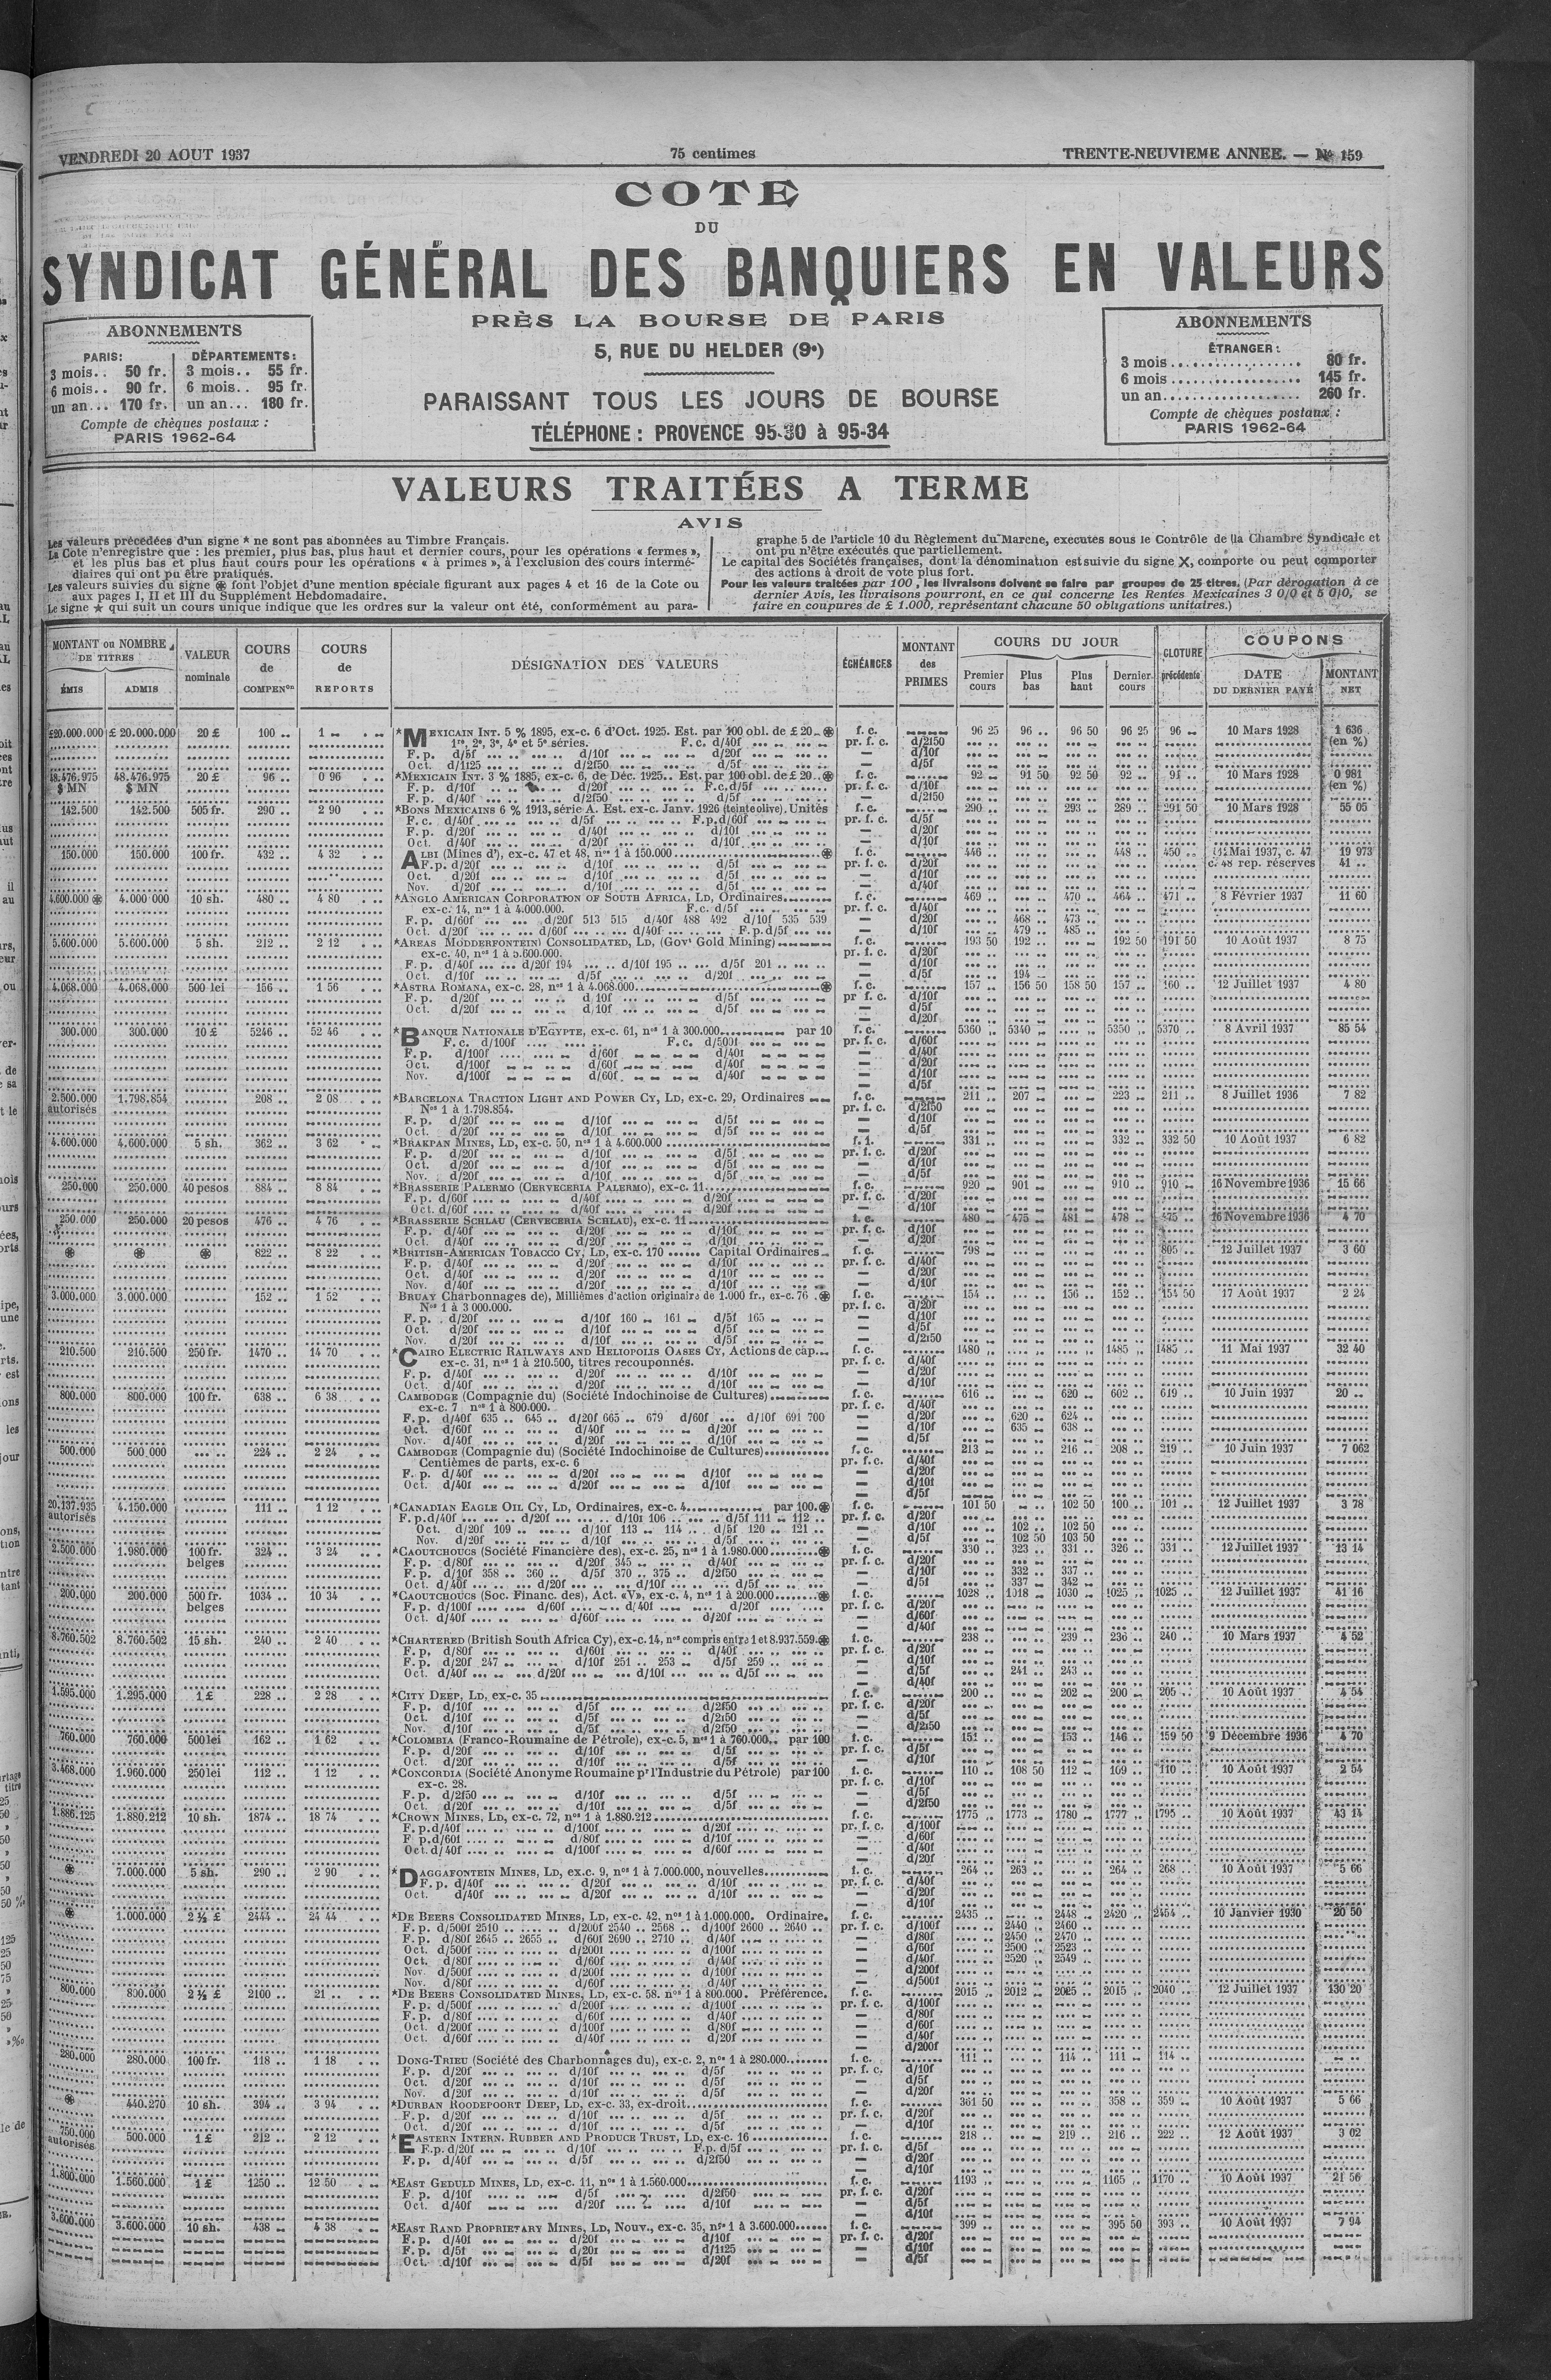 VENDREDI 20 AOUT 1937
75 centimes
TRENTE-NEUVIEME ANNEE. — No 159
COTE
DU
SYNDICAT GÉNÉRAL DES BANQUIERS EN VALEURS
PRÈS LA BOURSE DE PARIS
5, RUE DU HELDER (9e)
PARAISSANT TOUS LES JOURS DE BOURSE
TÉLÉPHONE : PROVENCE 95-30 à 95-34
ABONNEMENTS
PARIS: DÉPARTEMENTS:
3 mois.. 50 fr. 3 mois.. 55 fr.
6 mois.. 90 fr. 6 mois.. 95 fr.
un an... 170 fr. un an... 180 fr.
Compte de chèques postaux :
PARIS 1962-64
ABONNEMENTS
ÉTRANGER :
3 mois.................. 80 fr.
6 mois.................. 145 fr.
un an................... 260 fr.
Compte de chèques postaux :
PARIS 1962-64
VALEURS TRAITÉES A TERME
AVIS
Les valeurs précédées d'un signe * ne sont pas abonnées au Timbre Français.
La Cote n'enregistre que : les premier, plus bas, plus haut et dernier cours, pour les opérations « fermes »,
et les plus bas et plus haut cours pour les opérations « à primes », à l'exclusion des cours intermé-
diaires qui ont pu être pratiqués.
Les valeurs suivies du signe ⊛ font l'objet d'une mention spéciale figurant aux pages 4 et 16 de la Cote ou
aux pages I, II et III du Supplément Hebdomadaire.
Le signe ★ qui suit un cours unique indique que les ordres sur la valeur ont été, conformément au para-
graphe 5 de l'article 10 du Règlement du Marché, executés sous le Contrôle de la Chambre Syndicale et
ont pu n'être exécutés que partiellement.
Le capital des Sociétés françaises, dont la dénomination est suivie du signe X, comporte ou peut comporter
des actions à droit de vote plus fort.
Pour les valeurs traitées par 100, les livraisons doivent se faire par groupes de 25 titres. (Par dérogation à ce
dernier Avis, les livraisons pourront, en ce qui concerne les Rentes Mexicaines 3 0/0 et 5 0/0, se
faire en coupures de £ 1.000, représentant chacune 50 obligations unitaires.)
MONTANT ou NOMBRE DE TITRES ÉMIS ADMIS
VALEUR nominale
COURS de COMPENon
COURS de REPORTS
DÉSIGNATION DES VALEURS
ÉCHÉANCES
MONTANT des PRIMES
COURS DU JOUR Premier cours Plus bas Plus haut Dernier cours
CLOTURE précédente
COUPONS DATE DU DERNIER PAYÉ MONTANT NET
£20.000.000 £ 20.000.000 20 £ 100 .. 1 .. *MEXICAIN INT. 5 % 1895, ex-c. 6 d'Oct. 1925. Est. par 100 obl. de £ 20 ..⊛ f. c. 96 25 96 .. 96 50 96 25 96 .. 10 Mars 1928 1 636
1re, 2e, 3e, 4e et 5e séries. F.c. d/40f pr. f. c. d/2f50 (en %)
F. p. d/5f d/10f d/20f — d/10f
Oct. d/1f25 d/2f50 d/5f — d/5f
48.476.975 48.476.975 20 £ 96 .. 0 96 *MEXICAIN INT. 3 % 1885, ex-c. 6, de Déc. 1925.. Est. par 100 obl. de £ 20 ..⊛ f. c. 92 .. 91 50 92 50 92 .. 91 .. 10 Mars 1928 0 981
$ MN $ MN F. p. d/10f d/20f F.c. d/5f pr. f. c. d/10f (en %)
F. p. d/40f d/2f50 d/5f — d/2f50
142.500 142.500 505 fr. 290 .. 2 90 *BONS MEXICAINS 6 % 1913, série A. Est. ex-c. Janv. 1926 (teinte olive). Unités f. c. 290 .. 293 .. 289 .. 291 50 10 Mars 1928 55 05
F. c. d/40f d/5f F.p. d/60f pr. f. c. d/5f
F. p. d/20f d/40f d/10f — d/20f
Oct. d/40f d/20f d/10f — d/10f
150.000 150.000 100 fr. 432 .. 4 32 ALBI (Mines d'), ex-c. 47 et 48, nos 1 à 150.000 ⊛ f. c. 446 448 .. 450 .. Mai 1937, c. 47 19 973
F. p. d/20f d/10f d/5f pr. f. c. d/20f c. 48 rep. réserves 41 ..
Oct. d/20f d/10f d/5f — d/10f
Nov. d/20f d/10f d/5f — d/40f
4.600.000 ⊛ 4.000 000 10 sh. 480 .. 4 80 *ANGLO AMERICAN CORPORATION OF SOUTH AFRICA, LD, Ordinaires f. c. 469 .. 470 .. 464 .. 471 .. 8 Février 1937 11 60
ex-c. 14, nos 1 à 4.000.000. F.c. d/5f pr. f. c. d/40f
F. p. d/60f d/20f 513 515 d/40f 488 492 d/10f 535 539 — d/20f 468 .. 473 ..
Oct. d/20f d/60f d/40f F.p. d/5f — d/10f 479 .. 485 ..
5.600.000 5.600.000 5 sh. 212 .. 2 12 *AREAS MODDERFONTEIN CONSOLIDATED, LD, (Govt Gold Mining) f. c. 193 50 192 .. 192 50 191 50 10 Août 1937 8 75
ex-c. 40, nos 1 à 5.600.000. pr. f. c. d/20f
F. p. d/40f d/20f 194 d/10f 195 d/5f 201 — d/10f
Oct. d/10f d/5f d/20f — d/5f 194 ..
4.068.000 4.068.000 500 lei 156 .. 1 56 *ASTRA ROMANA, ex-c. 28, nos 1 à 4.068.000 ⊛ f. c. 157 .. 156 50 158 50 157 .. 160 .. 12 Juillet 1937 4 80
F. p. d/20f d 10f d/5f pr f. c. d/10f
Oct. d/20f d 10f d/5f — d/5f
d/20f
300.000 300.000 10 £ 5246 .. 52 46 *BANQUE NATIONALE D'EGYPTE, ex-c. 61, nos 1 à 300.000 par 10 f. c. 5360 .. 5340 .. 5350 .. 5370 .. 8 Avril 1937 85 54
F. c. d/100f F. c. d/500f pr. f. c. d/60f
F. p. d/100f d/60f d/40f — d/40f
Oct. d/100f d/60f d/40f — d/20f
Nov. d/100f d/60f d/40f — d/10f
— d/5f
2.500.000 1.798.854 208 .. 2 08 *BARCELONA TRACTION LIGHT AND POWER CY, LD, ex-c. 29, Ordinaires f. c. 211 .. 207 .. 223 .. 211 .. 8 Juillet 1936 7 82
autorisés Nos 1 à 1.798.854. pr. f. c. d/2f50
F. p. d/20f d/10f d/5f — d/10f
Oct. d/20f d/10f d/5f — d/5f
4.600.000 4.600.000 5 sh. 362 .. 3 62 *BRAKPAN MINES, LD, ex-c. 50, nos 1 à 4.600.000 f. 1. 331 .. 332 .. 332 50 10 Août 1937 6 82
F. p. d/20f d/10f d/5f pr. f. c. d/20f
Oct. d/20f d/10f d/5f — d/10f
Nov. d/20f d/10f d/5f — d/5f
250.000 250.000 40 pesos 884 .. 8 84 *BRASSERIE PALERMO (CERVECERIA PALERMO), ex-c. 11 f. c. 920 .. 901 .. 910 .. 910 .. 16 Novembre 1936 15 66
F. p. d/60f d/40f d/20f pr. f. c. d/20f
Oct. d/60f d/40f d/20f — d/10f
250.000 250.000 20 pesos 476 .. 4 76 *BRASSERIE SCHLAU (CERVECERIA SCHLAU), ex-c. 11 f. c. 480 .. 475 .. 481 .. 478 .. 475 .. 16 Novembre 1936 4 70
F. p. d/40f d/20f d/10f pr. f. c. d/10f
Oct. d/40f d/20f d/10f — d/20f
⊛ ⊛ ⊛ 822 .. 8 22 *BRITISH-AMERICAN TOBACCO CY, LD, ex-c. 170 ...... Capital Ordinaires f. c. 798 .. 805 .. 12 Juillet 1937 3 60
F. p. d/40f d/20f d/10f pr. f. c. d/40f
Oct. d/40f d/20f d/10f — d/20f
Nov. d/40f d/20f d/10f — d/10f
3.000.000 3.000.000 152 .. 1 52 BRUAY Charbonnages de), Millièmes d'action originaire de 1.000 fr., ex-c. 76 .⊛ f. c. 154 .. 156 .. 152 .. 154 50 17 Août 1937 2 24
Nos 1 à 3 000.000. pr. f. c. d/20f
F. p. d/20f d/10f 160 .. 161 .. d/5f 165 — d/10f
Oct. d/20f d/10f d/5f — d/5f
Nov. d/20f d/10f d/5f — d/2f50
210.500 210.500 250 fr. 1470 .. 14 70 *CAIRO ELECTRIC RAILWAYS AND HELIOPOLIS OASES CY, Actions de cap... f. c. 1480 .. 1485 .. 1485 .. 11 Mai 1937 32 40
ex-c. 31, nos 1 à 210.500, titres recouponnés. pr. f. c. d/40f
F. p. d/40f d/20f d/10f — d/20f
Oct. d/40f d/20f d/10f — d/10f
800.000 800.000 100 fr. 638 .. 6 38 CAMBODGE (Compagnie du) (Société Indochinoise de Cultures) f. c. 616 .. 620 .. 602 .. 619 .. 10 Juin 1937 20 ..
ex-c. 7 nos 1 à 800.000. pr. f. c. d/40f
F. p. d/40f 635 .. 645 .. d/20f 665 .. 679 d/60f ... d/10f 691 700 — d/20f 620 .. 624 ..
Oct. d/60f d/40f d/20f — d/10f 635 .. 638 ..
Nov. d/40f d/20f d/10f — d/5f
500.000 500 000 224 .. 2 24 CAMBODGE (Compagnie du) (Société Indochinoise de Cultures) f. c. 213 .. 216 .. 208 .. 219 .. 10 Juin 1937 7 062
Centièmes de parts, ex-c. 6 pr. f. c. d/40f
F. p. d/40f d/20f d/10f — d/20f
Oct. d/40f d/20f d/10f — d/10f
— d/5f
20.137.935 4.150.000 111 .. 1 12 *CANADIAN EAGLE OIL CY, LD, Ordinaires, ex-c. 4 par 100. ⊛ f. c. 101 50 102 50 100 .. 101 .. 12 Juillet 1937 3 78
autorisés F. p. d/40f d/20f d/10f 106 d/5f 111 .. 112 .. pr. f. c. d/20f
Oct. d/20f 109 d/10f 113 .. 114 .. d/5f 120 .. 121 .. — d/10f 102 .. 102 50
Nov. d/20f d/10f d/5f — d/5f 102 50 103 50
2.500.000 1.980.000 100 fr. 324 .. 3 24 *CAOUTCHOUCS (Société Financière des), ex-c. 25, nos 1 à 1.980.000 ⊛ f. c. 330 .. 323 .. 331 .. 326 .. 331 .. 12 Juillet 1937 13 14
belges F. p. d/80f d/20f 345 d/40f pr. f. c. d/20f
F. p. d/10f 358 .. 360 .. d/5f 370 .. 375 .. d/2f50 — d/10f 332 .. 337 ..
Oct. d/40f d/20f d/10f d/5f — d/5f 337 .. 342 ..
200.000 200.000 500 fr. 1034 .. 10 34 *CAOUTCHOUCS (Soc. Financ. des), Act. «V», ex-c. 4, nos 1 à 200.000 ⊛ f. c. 1028 .. 1018 .. 1030 .. 1025 .. 1025 .. 12 Juillet 1937 41 16
belges F. p. d/100f d/60f d/40f d/20f pr. f. c. d/20f
Oct. d/40f d/60f d/20f — d/60f
— d/40f
8.760.502 8.760.502 15 sh. 240 .. 2 40 *CHARTERED (British South Africa Cy), ex-c. 14, nos compris entre 1 et 8.937.559.⊛ f. c. 238 .. 239 .. 236 .. 240 .. 10 Mars 1937 4 52
F. p. d/80f d/60f d/40f pr. f. c. d/20f
F. p. d/20f 247 d/10f 251 .. 253 .. d/5f 259 — d/10f
Oct. d/40f d/20f d/10f d/5f — d/5f 241 .. 243 ..
— d/40f
1.595.000 1.295.000 1 £ 228 .. 2 28 *CITY DEEP, LD, ex-c. 35 f. c. 200 .. 202 .. 200 .. 205 .. 10 Août 1937 4 54
F. p. d/10f d/5f d/2f50 pr. f. c. d/20f
Oct. d/10f d/5f d/2f50 — d/5f
Nov. d/10f d/5f d/2f50 — d/2f50
760.000 760.000 500 lei 162 .. 1 62 *COLOMBIA (Franco-Roumaine de Pétrole), ex-c. 5, nos 1 à 760.000.. par 100 f. c. 151 .. 153 .. 146 .. 159 50 9 Décembre 1936 4 70
F. p. d/20f d/10f d/5f pr. f. c. d/5f
Oct. d/20f d/10f d/5f — d/10f
3.468.000 1.960.000 250 lei 112 .. 1 12 *CONCORDIA (Société Anonyme Roumaine pr l'Industrie du Pétrole) par 100 f. c. 110 .. 108 50 112 .. 109 .. 110 .. 10 Août 1937 2 54
ex-c. 28. pr. f. c. d/10f
F. p. d/2f50 d/10f d/5f — d/5f
Oct. d/20f d/10f d/5f — d/2f50
1.886.125 1.880.212 10 sh. 1874 .. 18 74 *CROWN MINES, LD, ex-c. 72, nos 1 à 1.880.212 f. c. 1775 1773 .. 1780 .. 1777 .. 1795 .. 10 Août 1937 43 14
F. p. d/40f d/100f d/20f pr. f. c. d/100f
F p. d/60f d/80f d/10f — d/60f
Oct. d/40f d/100f d/60f — d/40f
— d/20f
⊛ 7.000.000 5 sh. 290 .. 2 90 *DAGGAFONTEIN MINES, LD, ex.c. 9, nos 1 à 7.000.000, nouvelles f. c. 264 263 .. 264 .. 268 .. 10 Août 1937 5 66
F. p. d/40f d/20f d/10f pr. f. c. d/40f
Oct. d/40f d/20f d/10f — d/20f
— d/10f
⊛ 1.000.000 2 ½ £ 2444 .. 24 44 *DE BEERS CONSOLIDATED MINES, LD, ex-c. 42, nos 1 à 1.000.000. Ordinaire. f. c. 2435 .. 2448 .. 2420 .. 2454 .. 10 Janvier 1930 20 50
F. p. d/500f 2510 d/200f 2540 .. 2568 .. d/100f 2600 .. 2640 .. pr. f. c. d/100f 2440 .. 2460 ..
F. p. d/80f 2645 .. 2655 .. d/60f 2690 .. 2710 .. d/40f — d/80f 2450 .. 2470 ..
Oct. d/500f d/200f d/100f — d/60f 2500 .. 2523 ..
Oct. d/80f d/60f d/40f — d/40f 2520 .. 2549 ..
Nov. d/500f d/200f d/100f — d/200f
Nov. d/80f d/60f d/40f — d/500f
800.000 800.000 2 ½ £ 2100 .. 21 .. *DE BEERS CONSOLIDATED MINES, LD, ex-c. 58. nos 1 à 800.000. Préférence. f. c. 2015 .. 2012 .. 2025 .. 2015 .. 2040 .. 12 Juillet 1937 130 20
F. p. d/500f d/200f d/100f pr. f. c. d/100f
F. p. d/80f d/60f d/40f — d/80f
Oct. d/200f d/100f d/80f — d/60f
Oct. d/60f d/40f d/20f — d/40f
— d/200f
280.000 280.000 100 fr. 118 .. 1 18 DONG-TRIEU (Société des Charbonnages du), ex-c. 2, nos 1 à 280.000 f. c. 111 .. 114 .. 111 .. 114 ..
F. p. d/20f d/10f d/5f pr. f. c. d/10f
Oct. d/20f d/10f d/5f — d/5f
Nov. d/20f d/10f d/5f — d/20f
⊛ 440.270 10 sh. 394 .. 3 94 *DURBAN ROODEPOORT DEEP, LD, ex-c. 33, ex-droit f. c. 361 50 358 .. 359 .. 10 Août 1937 5 66
F. p. d/20f d/10f d/5f pr. f. c. d/20f
Oct. d/20f d/10f d/5f — d/10f
750.000 500.000 1 £ 212 .. 2 12 *EASTERN INTERN. RUBBER AND PRODUCE TRUST, LD, ex-c. 16 f. c. 218 .. 219 .. 216 .. 222 .. 12 Août 1937 3 02
autorisés F. p. d/20f d/10f F. p. d/5f pr. f. c. d/5f
F. p. d/40f d/5f d/2f50 — d/20f
— d/10f
1.800.000 1.560.000 1 £ 1250 .. 12 50 *EAST GEDULD MINES, LD, ex-c. 11, nos 1 à 1.560.000 f. c. 1193 .. 1165 .. 1170 .. 10 Août 1937 21 56
F. p. d/10f d/5f d/2f50 pr. f. c. d/20f
Oct. d/40f d/20f d/10f — d/5f
— d/10f
3.600.000 3.600.000 10 sh. 438 .. 4 38 *EAST RAND PROPRIETARY MINES, LD, Nouv., ex-c. 35, nos 1 à 3.600.000 f. c. 399 .. 395 50 393 .. 10 Août 1937 7 94
F. p. d/40f d/20f d/10f pr. f. c. d/20f
F. p. d/5f d/20f d/1f25 — d/10f
Oct. d/10f d/5f d/20f — d/5f